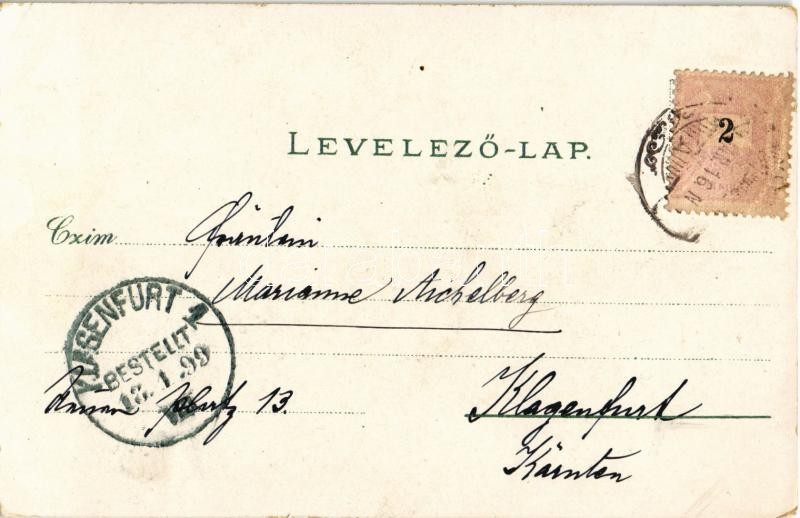 LEVELEZŐ-LAP.
2
Czim
Fräulein
Marianne Aichelberg
KLAGENFURT 1
BESTELLT
13. 1. 99
13.
Klagenfurt
Kärnten